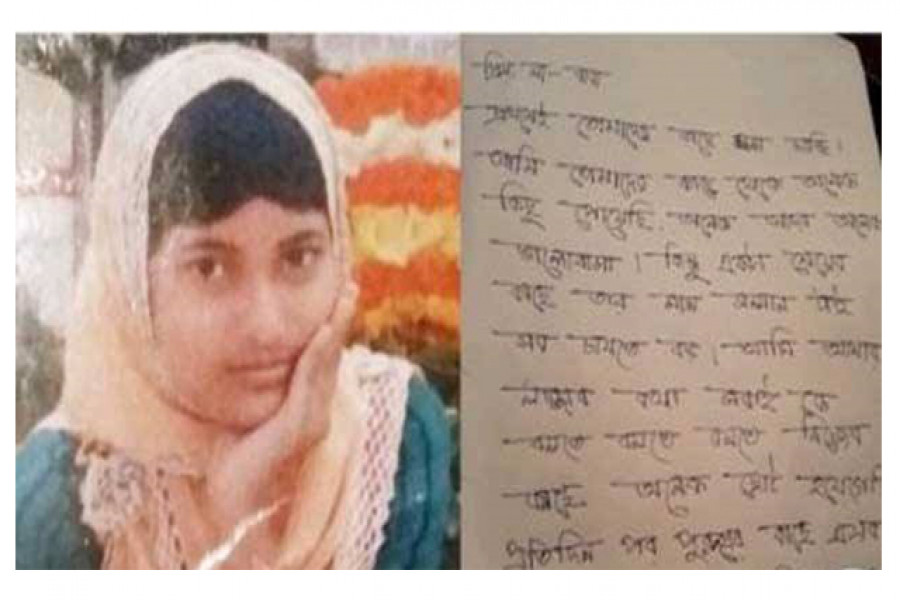 প্রিয় মা-বাবা
প্রথমেই তোমাদের কাছে ক্ষমা চাচ্ছি।
আমি তোমাদের কাছ থেকে অনেক
কিছু পেয়েছি. অনেক আদর অনেক
ভালোবাসা। কিন্তু একটা মেয়ের
কাছে তার মান সম্মান টাই
সব চাইতে বড়। আমি আমার
লজ্জার কথা সবাই কে
বলতে বলতে বলতে নিজের
কাছে অনেক ছোট হয়েগেছি
প্রতিদিন পর পুরুষের কাছে এসব